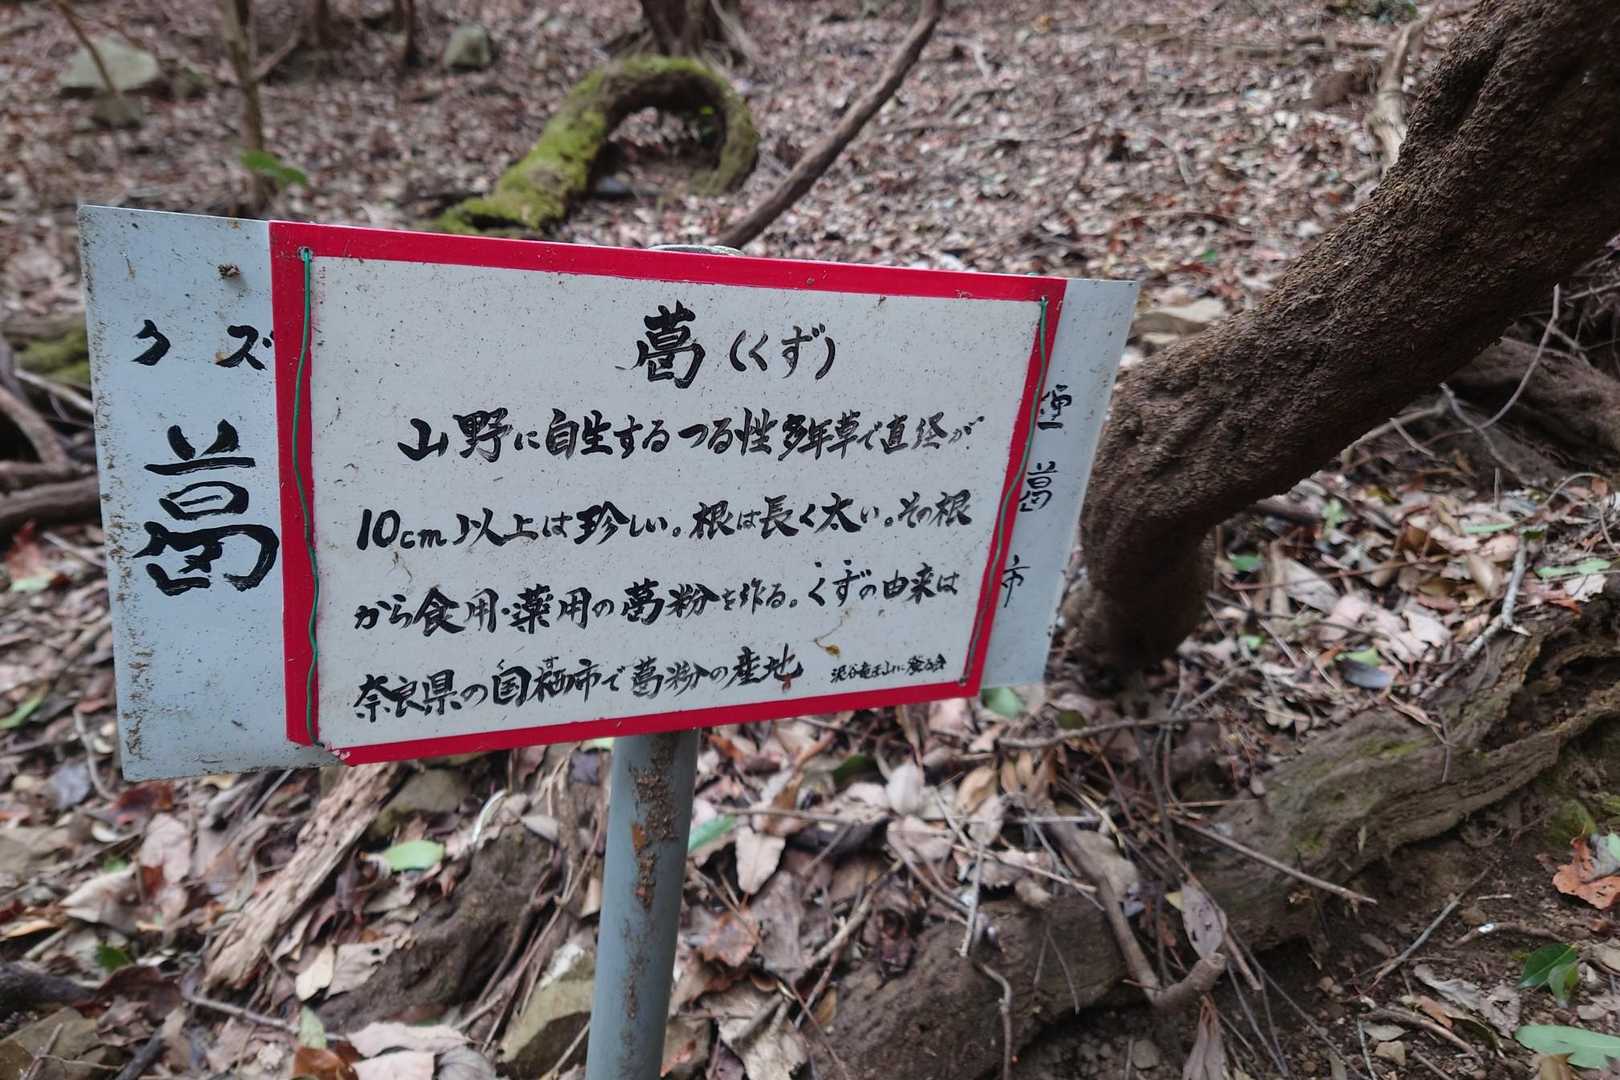 クズ
葛
葛(くず)
山野に自生するつる性多年草で直径が
10cm以上は珍しい。根は長く太い。その根
から食用・薬用の葛粉を作る。くずの由来は
奈良県の国栖市で葛粉の産地
葛
市